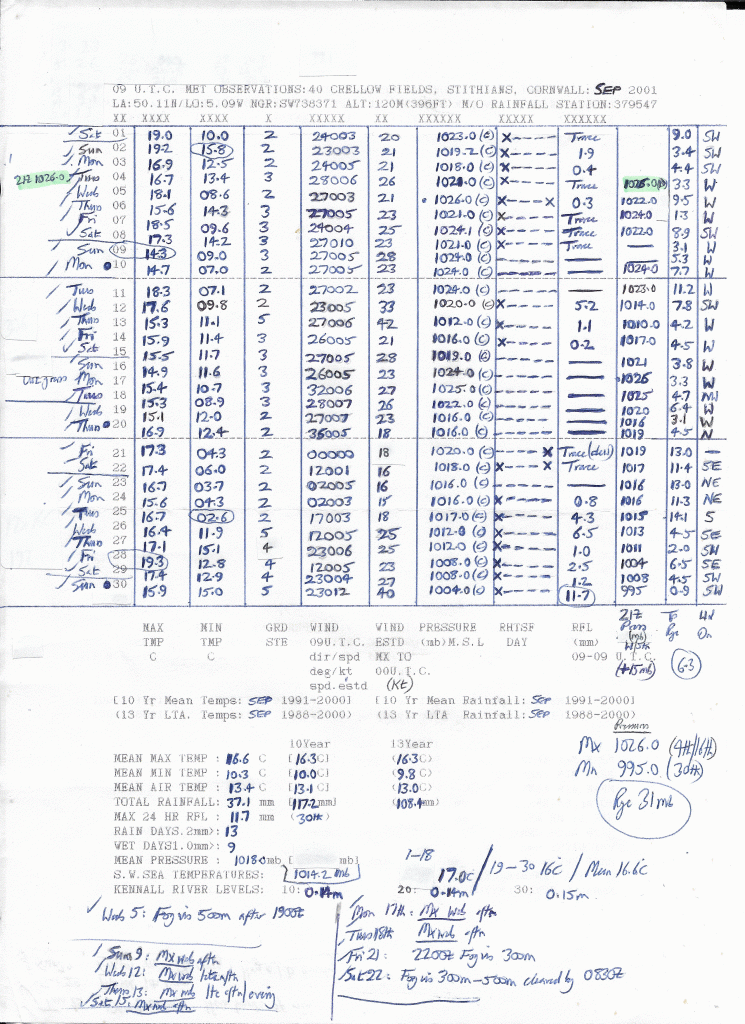 09 U.T.C. MET OBSERVATIONS:40 CRELLOW FIELDS, STITHIANS, CORNWALL: SEP 2001
LA:50.11N/LO:5.09W NGR:SW738371 ALT:120M(396FT) M/O RAINFALL STATION:379547
XX XXXX XXXX X XXXXX XX XXXXXX XXXXX XXXXXX
Sat 01 19.0 10.0 2 24003 20 1023.0 (c) X---- Trace 9.0 SW
Sun 02 19.2 15.8 2 23003 21 1019.2 (c) X---- 1.9 3.4 SW
Mon 03 16.9 12.5 2 24005 21 1018.0 (c) X---- 0.4 4.4 SW
212 1026.0 Tues 04 16.7 13.4 3 28006 26 1021.0 (c) X---- Trace 1026.0 3.3 W
Wed 05 18.1 08.6 2 27003 21 1026.0 (c) X---- X 0.3 1022.0 9.5 W
Thurs 06 15.6 14.3 3 27005 23 1021.0 (c) X---- Trace 1024.0 1.3 W
Fri 07 18.5 09.6 3 24004 25 1024.1 (c) X---- Trace 1022.0 8.9 SW
Sat 08 17.3 14.2 3 27010 23 1021.0 (c) X---- Trace — 3.1 W
Sun 09 14.3 09.0 3 27005 28 1024.0 (c) ---- — — 5.3 W
Mon 10 14.7 07.0 2 27005 23 1024.0 (c) ---- — 1024.0 7.7 W
Tues 11 18.3 07.1 2 27002 23 1024.0 (c) ---- — 1023.0 11.2 W
Wed 12 17.6 09.8 2 23005 33 1020.0 (c) X---- 5.2 1014.0 7.8 SW
Thurs 13 15.3 11.1 5 27006 42 1012.0 (c) X---- 1.1 1010.0 4.2 W
Fri 14 15.9 11.4 3 26005 21 1016.0 (c) X---- 0.2 1017.0 4.5 W
Sat 15 15.5 11.7 3 27005 28 1019.0 (c) ---- —
Sun 16 14.9 11.6 3 26005 23 1024.0 (c) ---- — 1021 3.8 W
Mon 17 15.4 10.7 3 32006 27 1025.0 (c) ---- — 1026 3.3 W
Tues 18 15.3 08.9 3 28007 26 1022.0 (c) ---- — 1025 4.7 NW
Wed 19 15.1 12.0 2 27007 23 1016.0 (c) ---- — 1020 6.4 W
Thurs 20 16.9 12.4 2 36005 18 1016.0 (c) ---- — 1016 3.1 W
1019 4.5 N
Fri 21 17.3 04.3 2 00000 18 1020.0 (c) ---- X Trace (dew) 1019 13.0 —
Sat 22 17.4 06.0 2 12001 16 1018.0 (c) X---- X Trace 1017 11.4 SE
Sun 23 16.7 03.7 2 02005 16 1016.0 (c) ---- — 1016 13.0 NE
Mon 24 15.6 04.3 2 02003 15 1016.0 (c) X---- 0.8 1016 11.3 NE
Tues 25 16.7 02.6 2 17003 18 1017.0 (c) X---- 4.3 1015 14.1 S
Wed 26 16.4 11.9 5 12005 25 1012.0 (c) X---- 6.5 1013 4.5 SE
Thurs 27 17.1 15.1 4 23006 25 1012.0 (c) X---- 1.0 1011 2.0 SW
Fri 28 19.3 12.8 4 12005 23 1008.0 (c) X---- 2.5 1004 6.5 SE
Sat 29 17.4 12.9 4 23004 27 1008.0 (c) X---- 1.2 1008 4.5 SW
Sun 30 15.9 15.0 2 23012 40 1004.0 (c) X---- 11.7 995 0.9 SW
MAX MIN GRD WIND WIND PRESSURE RHTSF RFL
TMP TMP STE 09U.T.C. ESTD (mb)M.S.L DAY (mm)
C C dir/spd MX TO 09-09 U.T.C.
deg/kt 00U.T.C.
spd.estd (Kt)
21Z Press (mb)
(+15mb)
6.3
[10 Yr Mean Temps: SEP 1991-2000] [10 Yr Mean Rainfall: SEP 1991-2000]
(13 Yr LTA. Temps: SEP 1988-2000) (13 Yr LTA Rainfall: SEP 1988-2000)
Pressures
Mx 1026.0 (4th/16th)
Mn 995.0 (30th)
Rge 31 mb
10Year 13Year
MEAN MAX TEMP : 16.6 C [16.3C] (16.3C)
MEAN MIN TEMP : 10.3 C [10.0C] (9.8 C)
MEAN AIR TEMP : 13.4 C [13.1 C] (13.0C)
TOTAL RAINFALL: 37.1 mm [117.2mm] (108.4mm)
MAX 24 HR RFL : 11.7 mm (30th)
RAIN DAYS.2mm): 13
WET DAYS1.0mm): 9
MEAN PRESSURE : 1018.0mb [ mb]
1014.2 mb
S.W.SEA TEMPERATURES: 1-18 17.0C / 19-30 16C / Mean 16.6C
KENNALL RIVER LEVELS: 10: 0.14m 20: 0.14m 30: 0.15m
Weds 5: Fog vis 500m after 1900Z
Sun 9: Mx wd aftn
Weds 12: Mx wd late aftn
Thurs 13: Mx wd lte aftn/evening
Sat 15: Mx wd aftn
Mon 17th: Mx wd aftn
Tues 18th Mx wd aftn
Fri 21: 2200Z Fog vis 300m
Sat 22: Fog vis 300m-500m cleared by 0830Z